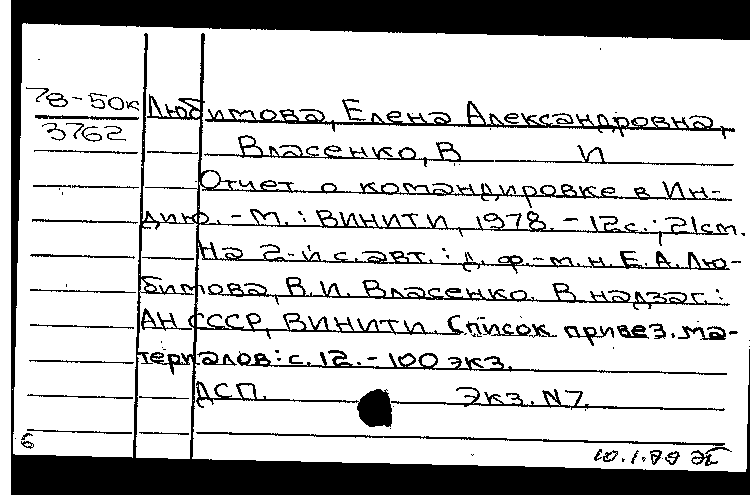 78-50к Любимова, Елена Александровна,
3762 Власенко, В И
Отчет о командировке в Ин-
дию. - М. : ВИНИТИ, 1978. - 12с. ; 21см.
На 2-й с. авт. : д. ф.-м. н. Е. А. Лю-
бимова, В. И. Власенко. В надзаг. :
АН СССР, ВИНИТИ. Список привез. ма-
териалов: с. 12. - 100 экз.
ДСП. Экз. N7.
6